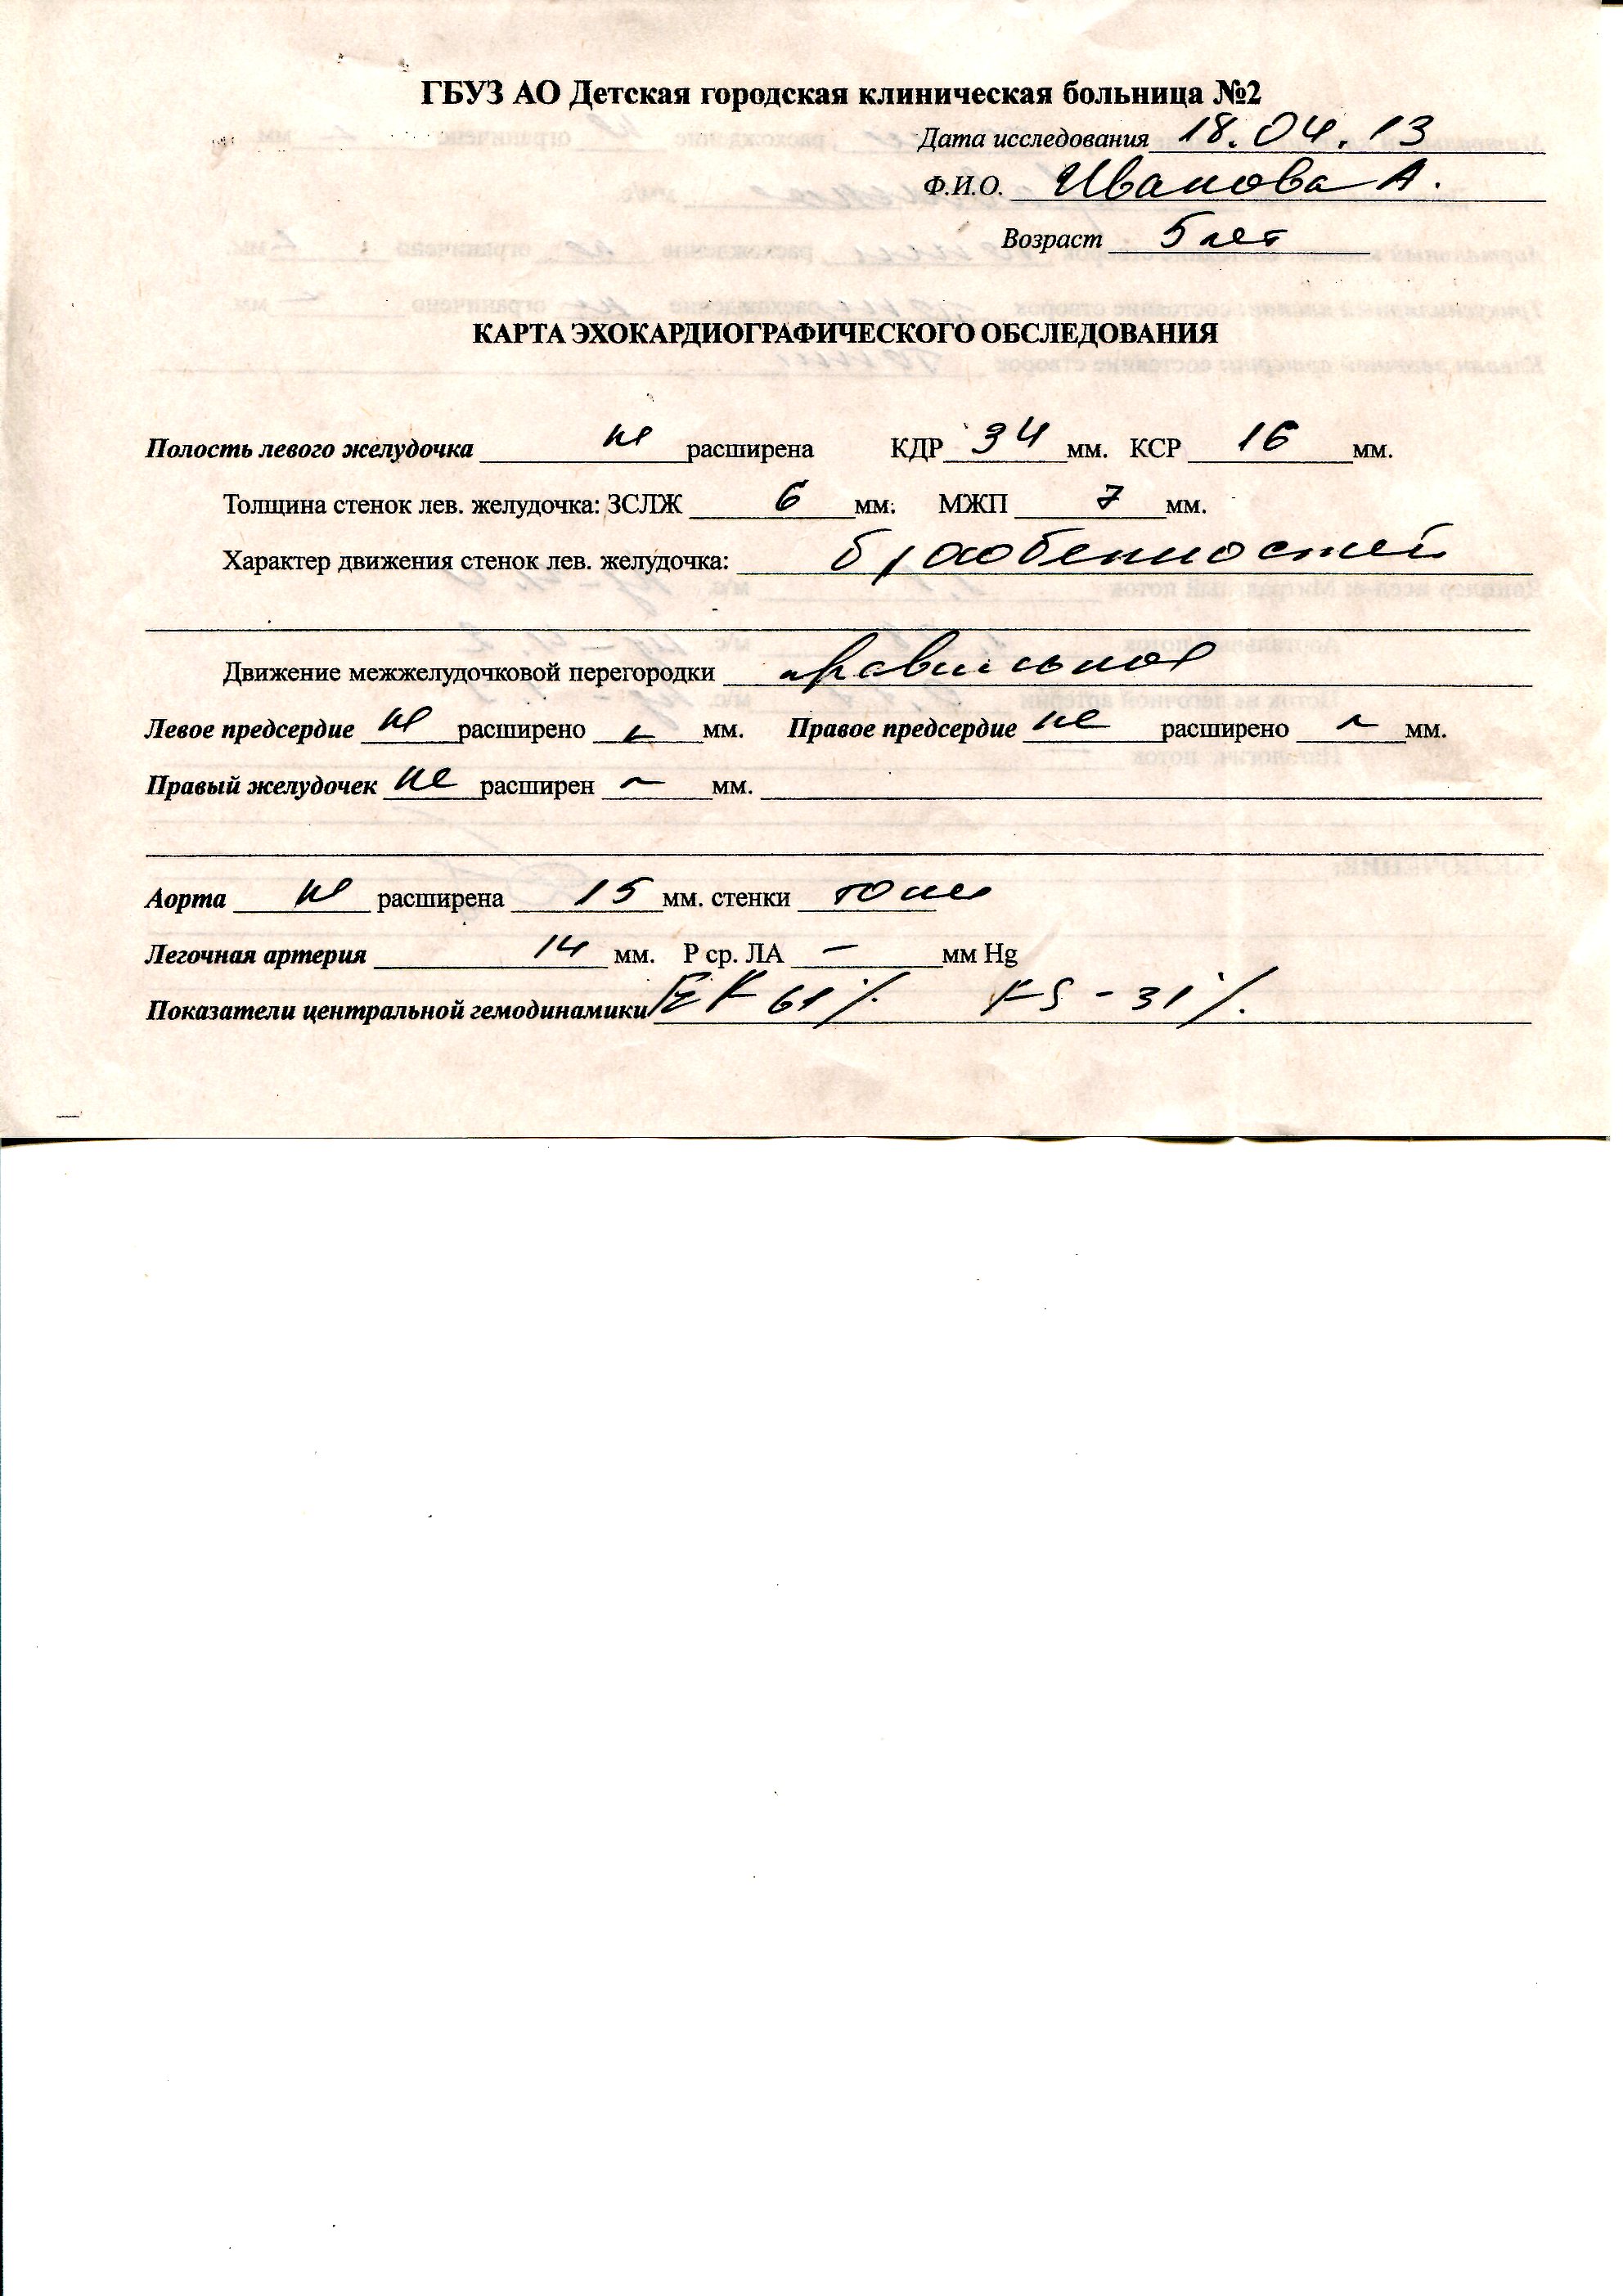 ГБУЗ АО Детская городская клиническая больница №2
Дата исследования 18.04.13
Ф.И.О. Иванова А.
Возраст 5 лет
КАРТА ЭХОКАРДИОГРАФИЧЕСКОГО ОБСЛЕДОВАНИЯ
Полость левого желудочка не расширена КДР 34 мм. КСР 16 мм.
Толщина стенок лев. желудочка: ЗСЛЖ 6 мм. МЖП 7 мм.
Характер движения стенок лев. желудочка: б/особенностей
Движение межжелудочковой перегородки правильное
Левое предсердие не расширено мм. Правое предсердие не расширено мм.
Правый желудочек не расширен мм.
Аорта не расширена 15 мм. стенки
Легочная артерия 14 мм. Р ср. ЛА — мм Hg
Показатели центральной гемодинамики 61% FS - 31%.